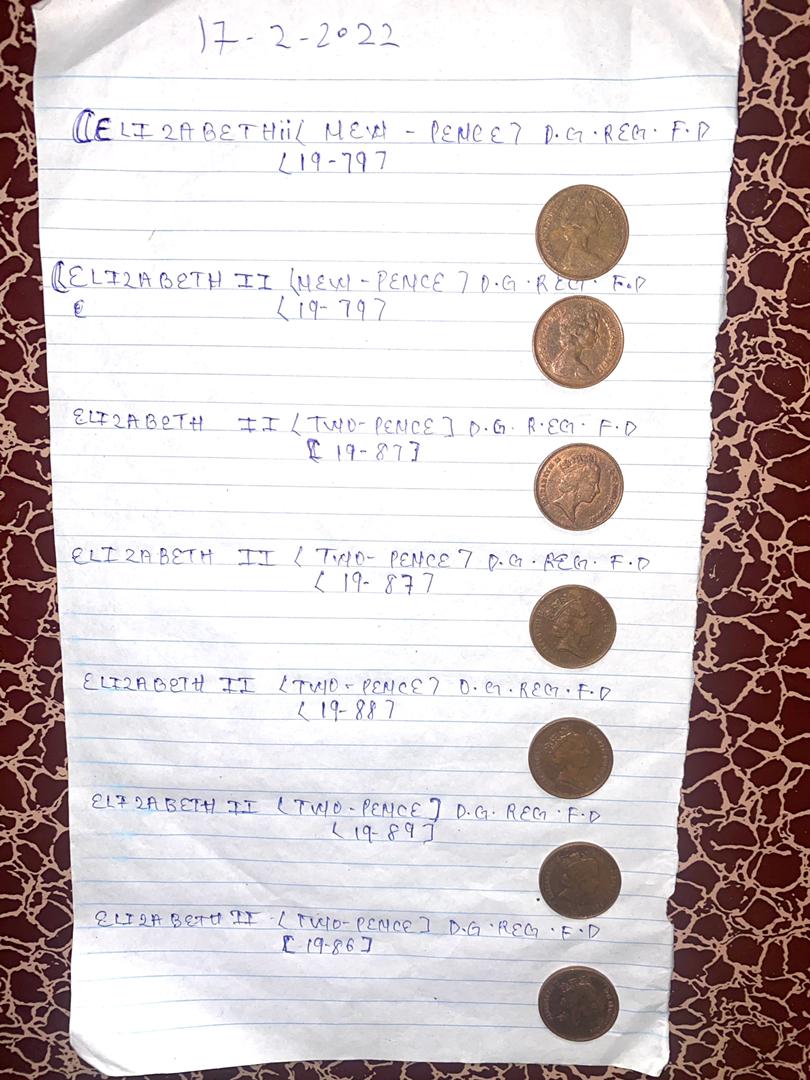 17-2-2022
ELIZABETH ii ( NEW - PENCE ) D.G.REG. F.D
(19-79)
ELIZABETH II (NEW - PENCE ) D.G.REG. F.D
(19-79)
ELIZABETH II (TWO-PENCE] D.G. R.EG. F.D
[ 19-87]
ELIZABETH II ( TWO- PENCE ) D.G. REG. F.D
( 19-87)
ELIZABETH II (TWO - PENCE ) D.G.REG.F.D
( 19-88)
ELIZABETH II (TWO-PENCE] D.G. REG.F.D
( 19-89]
ELIZABETH II - ( TWO-PENCE] D.G.REG.F.D
[ 19-86]